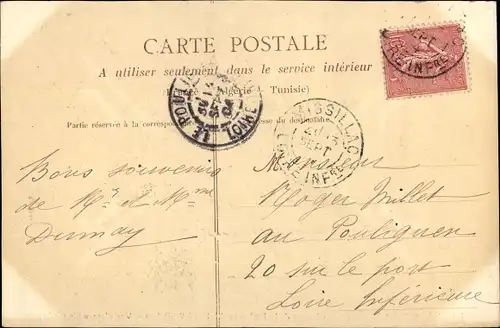 CARTE POSTALE
A utiliser seulement dans le service intérieur
Algérie & Tunisie)
Partie réservée à la correspondance
du destinataire
MISSILLAC
SEPT
LOIRE INFRE
LE POULIGUEN
Bons souvenirs
de Mr et Mme
Dumay
Monsieur
Roger Millet
au Pouliguen
20 sur le port
Loire Inférieure